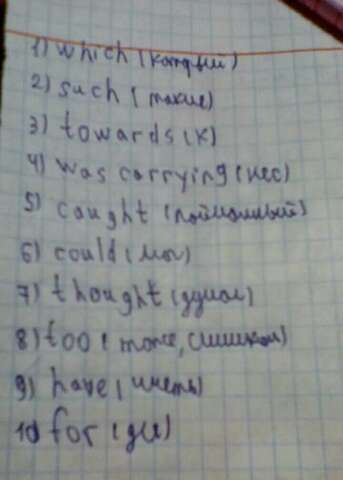 1) which (который)
2) such (такие)
3) towards (к)
4) was carrying (нес)
5) caught (пойманный)
6) could (мог)
7) thought (думал)
8) too (тоже, слишком)
9) have (иметь)
10) for (для)